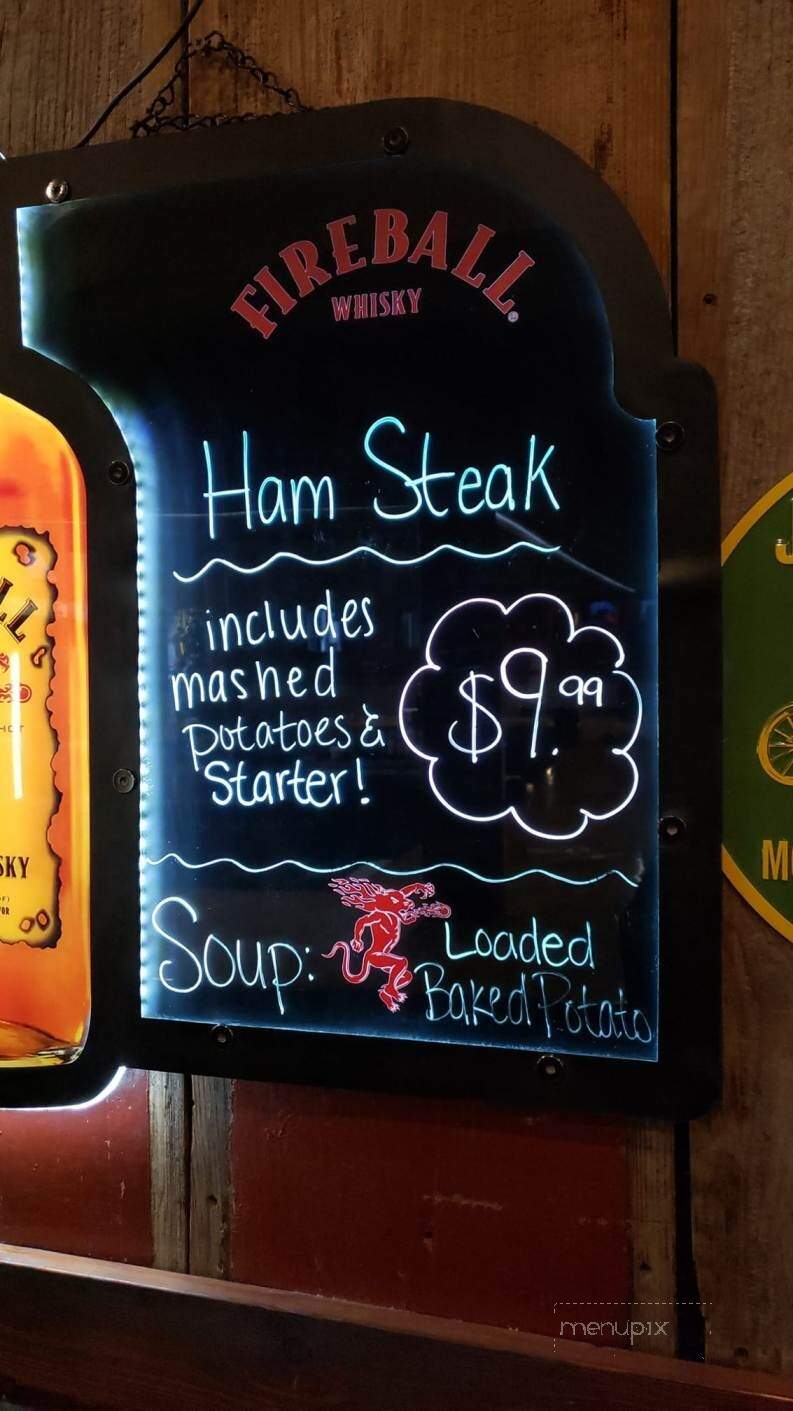 FIREBALL
WHISKY
Ham Steak
includes
mashed
potatoes &
Starter!
$9.99
Soup: Loaded
Baked Potato
SKY
menupix